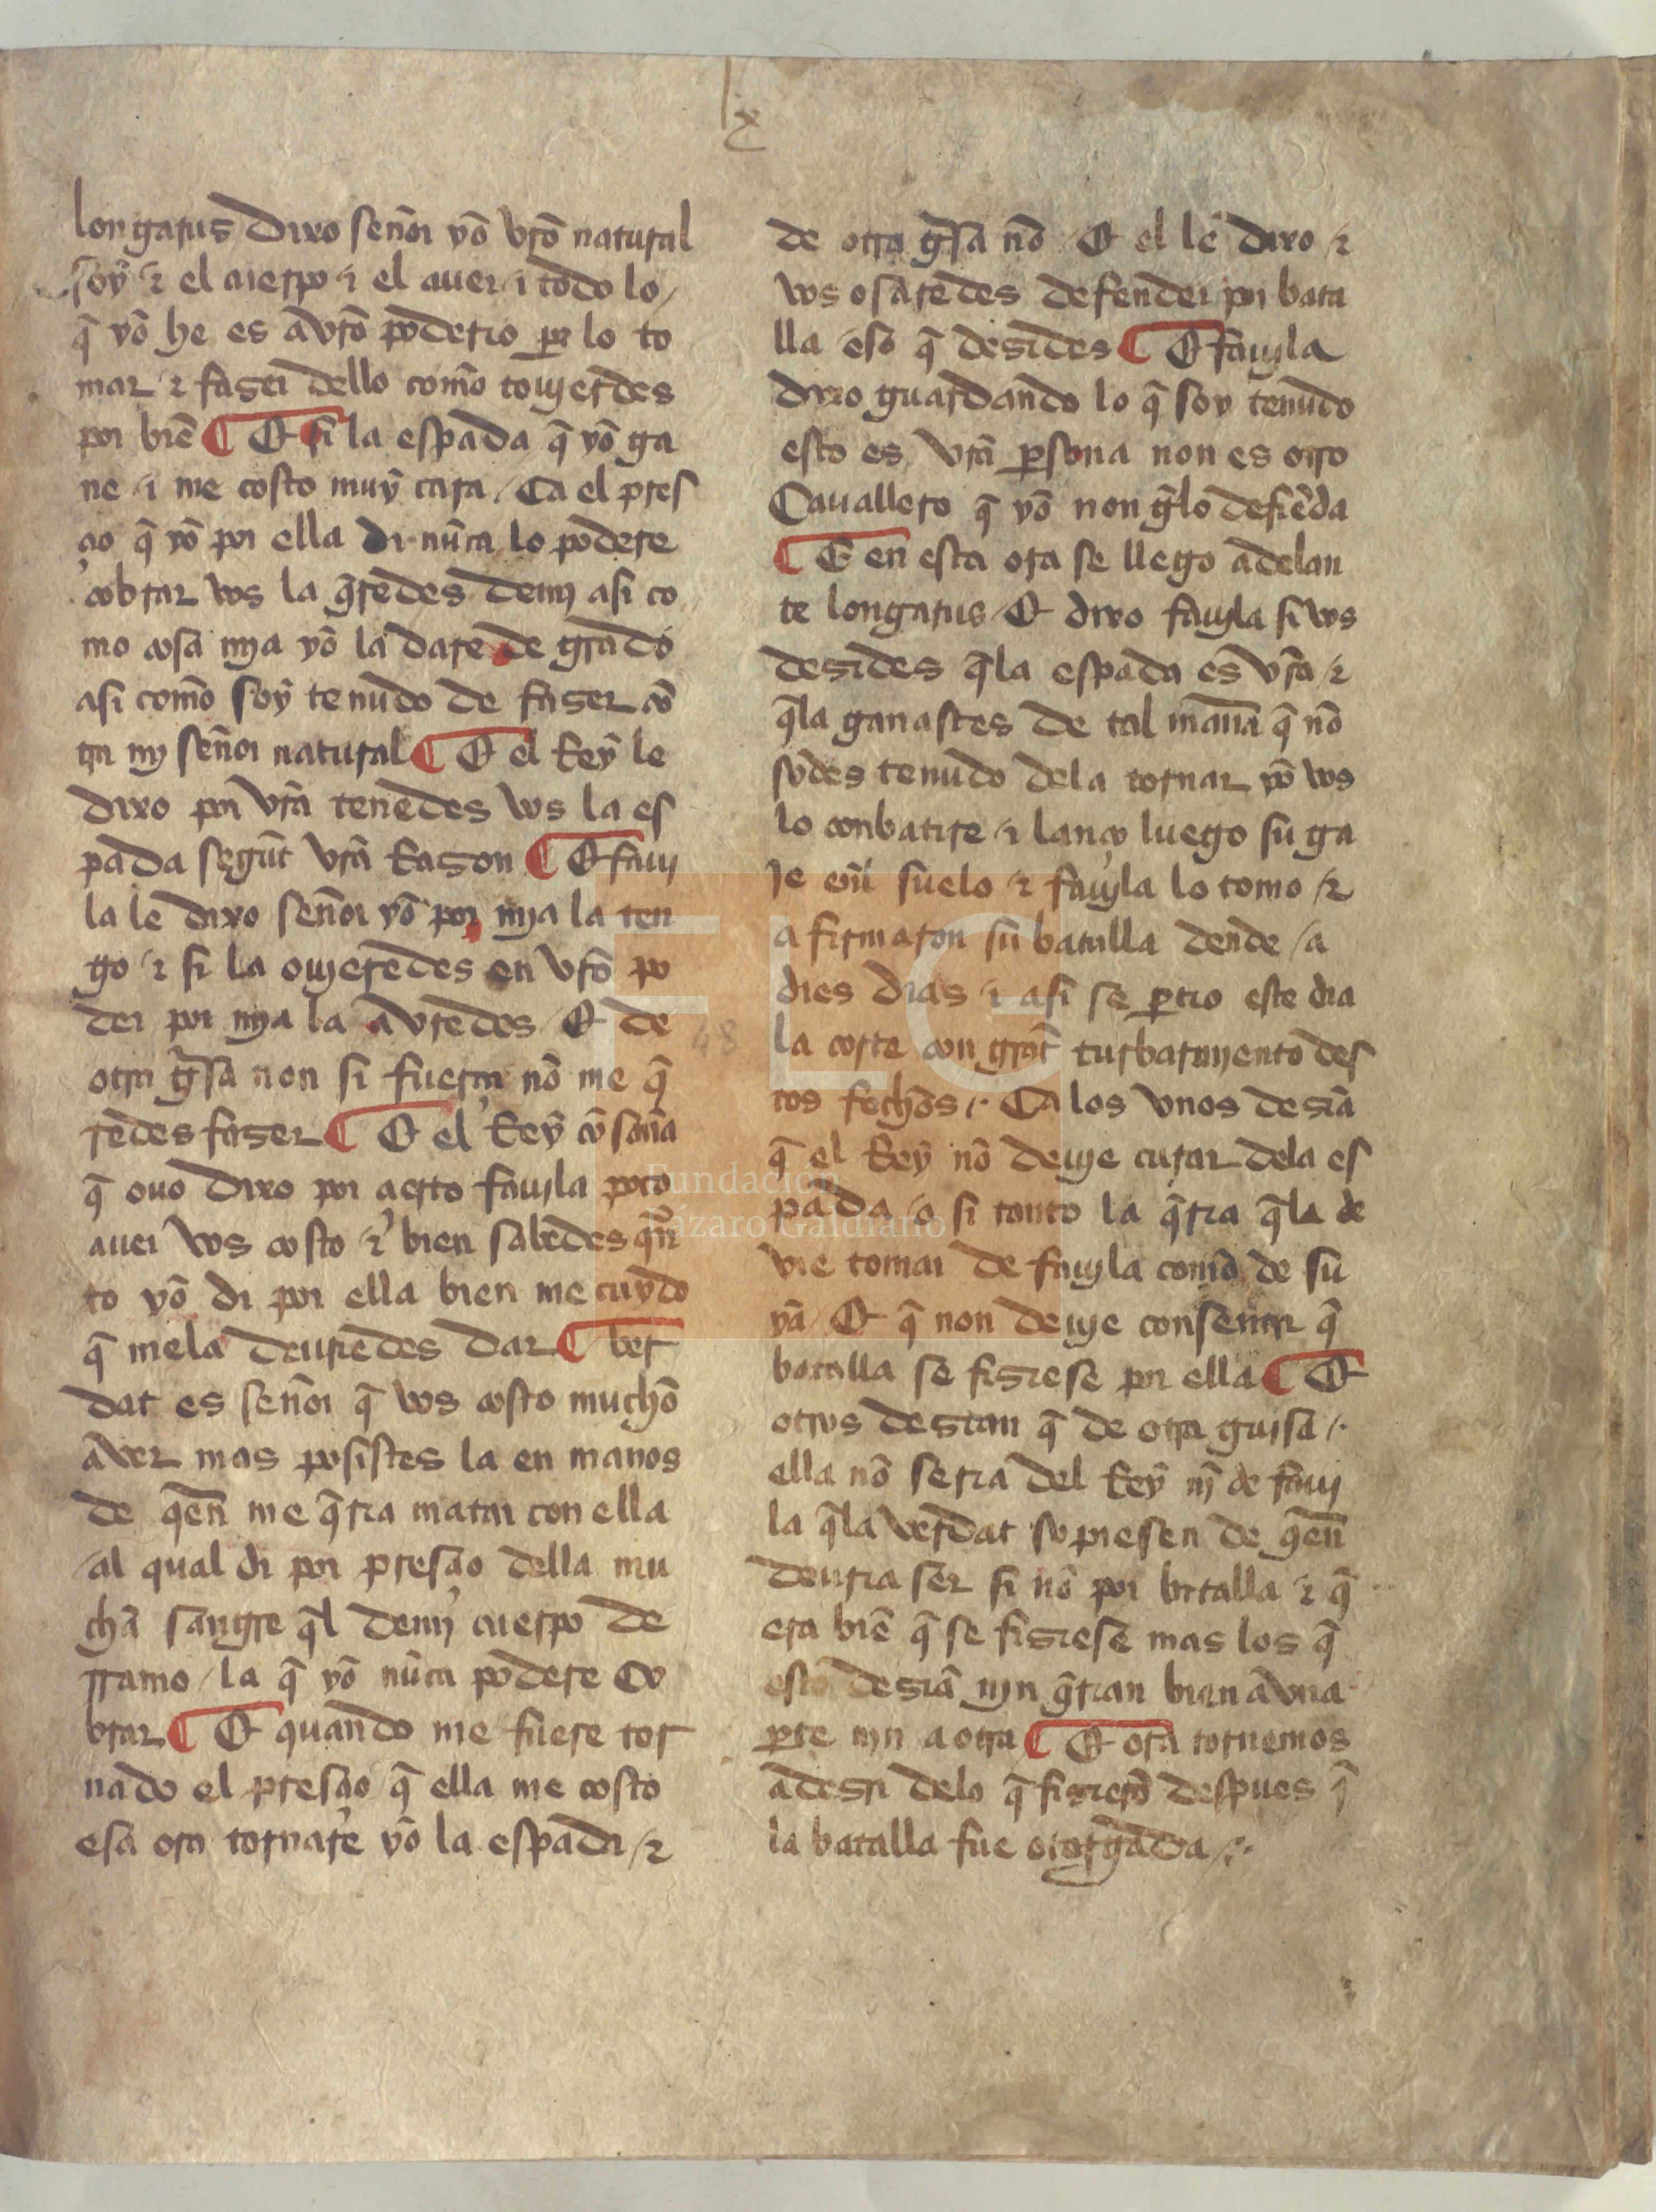 lx
longarus dixo señor yo̅ vr̅o natural
soy ⁊ el cuerpo ⁊ el auer ⁊ todo lo /
q̅ yo̅ he es a vr̅o poderio por lo to
mar ⁊ faser dello como̅ touierdes
por bie̅ ¶ Et si la espada q̅ yo̅ ga
ne ⁊ me costo muy cara / Ca el pres
çio q̅ yo̅ por ella di nu̅ca lo podere
cobrar vos la q̅redes de mj asi co
mo cosa mja yo̅ la dare de grado
asi como̅ soy tenudo de faser co̅
tra mj señor natural ¶ Et el Rey le
dixo por vr̅a tenedes vos la es
pada segu̅t vr̅a Rason ¶ Et fauj
la le dixo señor yo̅ por mja la ten
go ⁊ si la oujeredes en vr̅o po
der por mja la avredes / Et de
otra gi̅sa non si fuerça no̅ me q̅
redes faser ¶ Et el Rey co̅ saña
q̅ ouo dixo por açierto faujla poco
auer vos costo ⁊ bien sabedes qu̅
to yo̅ di por ella bien me cuydo
q̅ me la deuriedes dar ¶ ver
dat es señor q̅ vos costo mucho̅
aver mas posistes la en manos
de qe̅n me q̅ria matar con ella
al qual di por presçio della mu
cha̅ sangre q̅l de mj cuerpo de
rramo / la q̅ yo̅ nu̅ca podere co
brar ¶ Et quando me fuere tor
nado el presçio q̅ ella me costo
esa ora tornare yo̅ la espada / ⁊
de otra gi̅sa no̅ Et el le dixo / ⁊
vos osaredes defender por bata
lla eso q̅ desides ¶ Et faujla
dixo guardando lo q̅ soy tenudo
esto es vr̅a persona non es otro
Cauallero q̅ yo̅ non ge̅lo defie̅da
¶ E en esta ora se llego adelan
te longarus / Et dixo faujla si vos
desides q̅la espada es vr̅a / ⁊
q̅la ganastes de tal man̅a q̅ no̅
sodes tenudo dela tornar yo̅ vos
lo conbatire ⁊ lanço luego su ga
je en̅l suelo ⁊ faujla lo tomo / ⁊
a firmaron su batalla dende / a
dies dias ⁊ asi se partio este dia
la corte con gra̅t turbamjento des
tos fechos / Ca los vnos desia̅
q̅ el Rey no̅ deuje curar dela es
pada o si tanto la q̅ria q̅la de
uie tomar de faujla como̅ de su
ya̅ / Et q̅ non deuje consentir q̅
batalla se fisiese por ella ¶ Et
otros desian q̅ de otra guisa /
ella no̅ seria del Rey nj̅ de fauj
la q̅la verdat sopiesen de qe̅n
deuria ser si no̅ por batalla ⁊ q̅
era bie̅ q̅ se fisiese mas los q̅
esto desia̅ njn q̅rian bien a vna
parte njn a otra ¶ Et ora tornemos
a desir delo q̅ fisiero̅ despues q̅
la batalla fue otorgada /
48
FLG
Fundación
Lázaro Galdiano